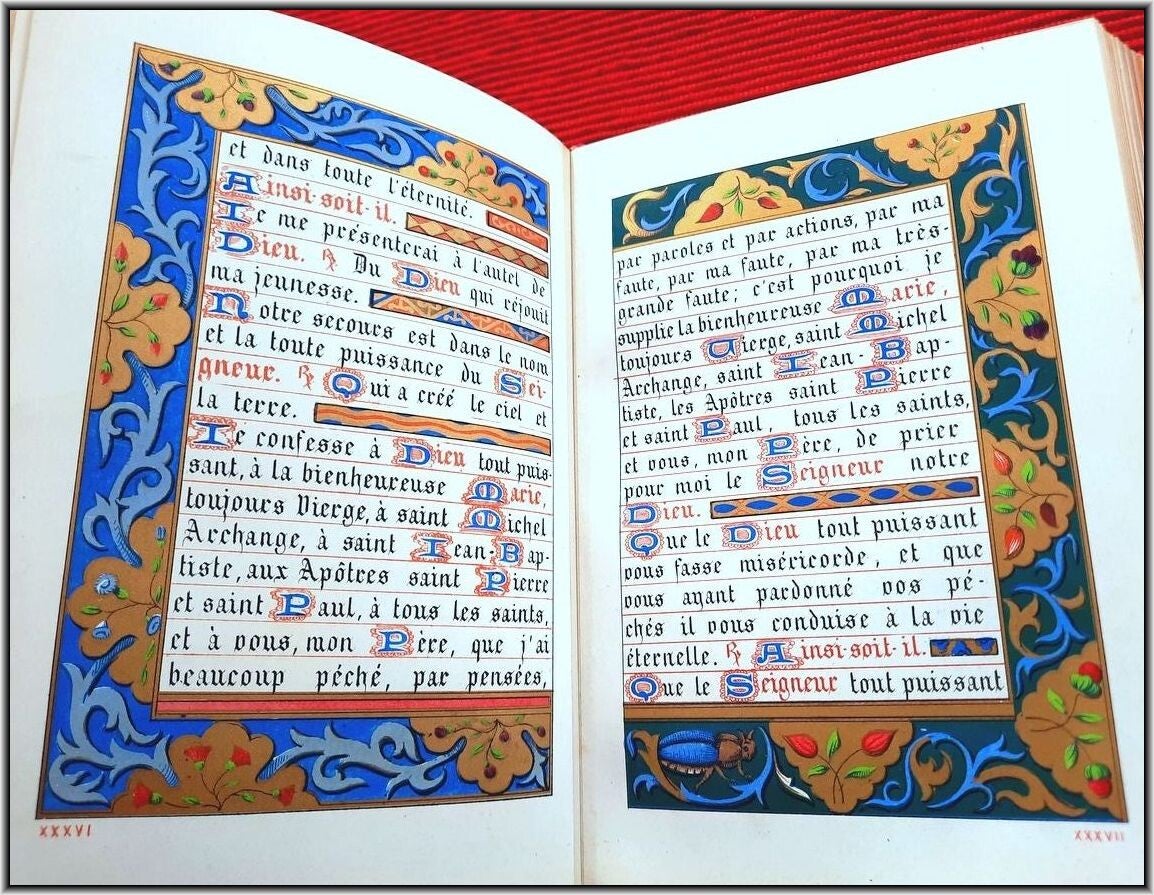 et dans toute l'éternité.
Ainsi-soit-il.
Je me présenterai à l'autel de
Dieu. ℟ Du Dieu qui réjouit
ma jeunesse.
Notre secours est dans le nom
et la toute puissance du Sei-
gneur. ℟ Qui a créé le ciel et
la terre.
Je confesse à Dieu tout puis-
sant, à la bienheureuse Marie,
toujours Vierge, à saint Michel
Archange, à saint Jean-Bap-
tiste, aux Apôtres saint Pierre
et saint Paul, à tous les saints,
et à vous, mon Père, que j'ai
beaucoup péché, par pensées,
XXXVI
par paroles et par actions, par ma
faute, par ma faute, par ma très-
grande faute; c'est pourquoi je
supplie la bienheureuse Marie,
toujours Vierge, saint Michel
Archange, saint Jean-Bap-
tiste, les Apôtres saint Pierre
et saint Paul, tous les saints,
et vous, mon Père, de prier
pour moi le Seigneur notre
Dieu.
Que le Dieu tout puissant
vous fasse miséricorde, et que
vous ayant pardonné vos pé-
chés il vous conduise à la vie
éternelle. ℟ Ainsi-soit-il.
Que le Seigneur tout puissant
XXXVII